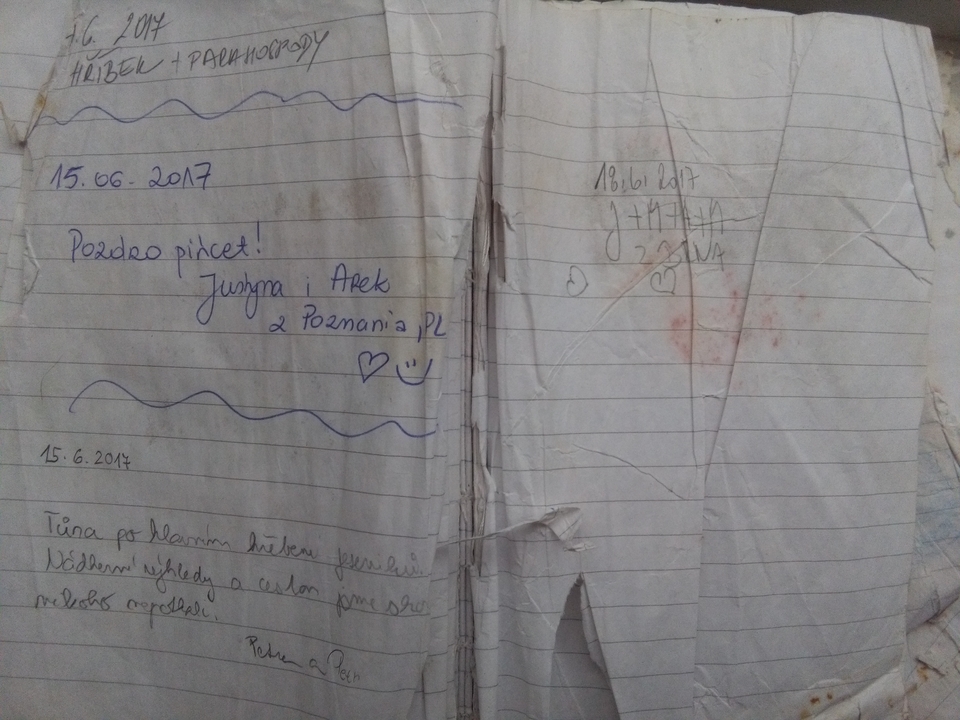 7.6. 2017
HŘÍBEK + PARAHOSPODY
15.06.2017
Pozdro pińcet!
Justyna i Arek
z Poznania, PL
15.6.2017
Túra po hlavním hřebeni Jeseníků.
Nádherné výhledy a cestou jsme
nikoho nepotkali.
Petra a Petr
18.6. 2017
J + M + A + A